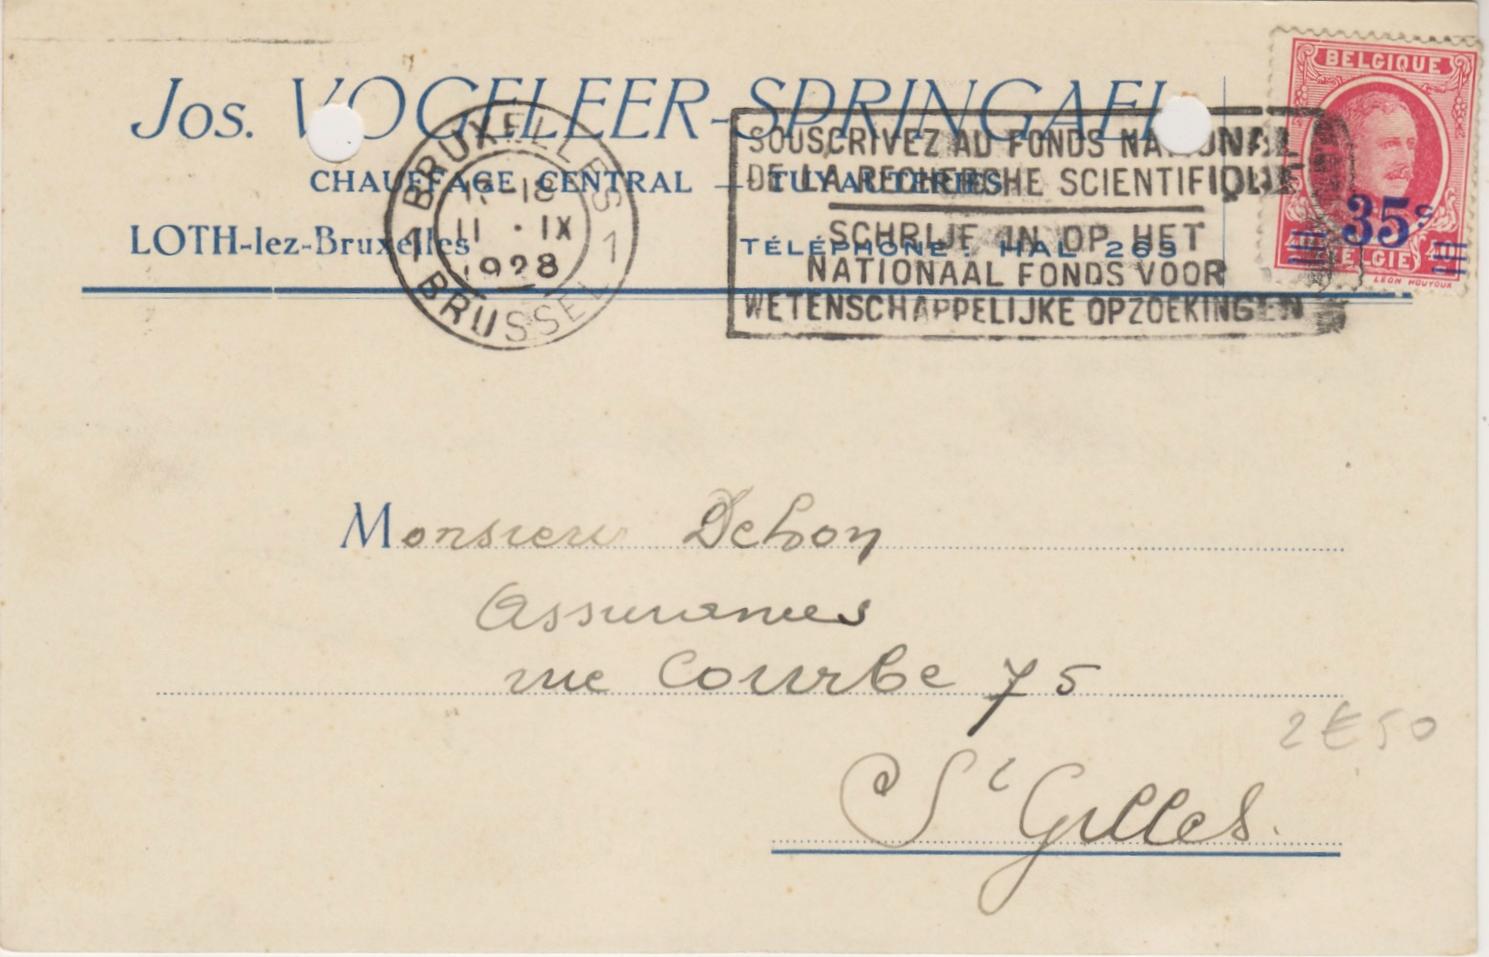 Jos. VOGELEER-SPRINGAEL
CHAUFFAGE CENTRAL — TUYAUTERIES
LOTH-lez-Bruxelles
TÉLÉPHONE: HAL 269
BRUXELLES
1 1
-18
11 · IX
1928
BRUSSEL
SOUSCRIVEZ AU FONDS NATIONAL
DE LA RECHERCHE SCIENTIFIQUE
SCHRIJF IN OP HET
NATIONAAL FONDS VOOR
WETENSCHAPPELIJKE OPZOEKINGEN
BELGIQUE
35c
BELGIE
LEON HOUYOUX
Monsieur Dehon
Assurances
rue Courbe 75
St Gilles.
2€50